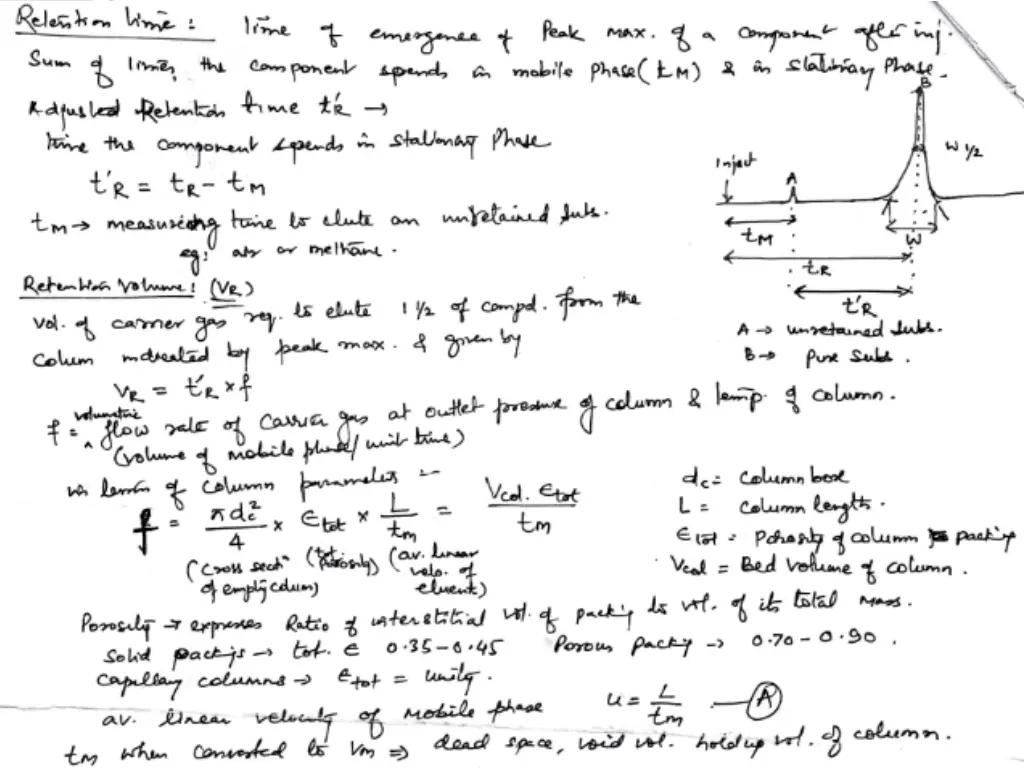 Retention time : time of emergence of Peak max. of a component after inj.
Sum of times, the component spends in mobile Phase (tM) & in stationary Phase.
Adjusted Retention time t'R →
time the component spends in stationary Phase
t'R = tR - tM
tM → measuring time to elute an unretained subs.
eg: air or methane.
Inject
A
B
W 1/2
tM
W
tR
t'R
A → unretained subs.
B → Pure subs.
Retention Volume : (VR)
Vol. of carrier gas req. to elute 1 1/2 of compd. from the
colum indicated by peak max. & given by
VR = t'R × f
f = volumetric flow rate of carrier gas at outlet pressure of column & temp. of column.
(volume of mobile phase/unit time)
in terms of column parameters :-
f = πdc²/4 × Etot × L/tm = Vcol. Etot/tm
(cross sect" of empty colum) (tot porosity) (av. linear velo. of eluent)
dc = column bore
L = column length.
Etot = Porosity of column packing
Vcol = Bed volume of column.
Porosity → expresses Ratio of interstitial vol. of packing to vol. of its total mass.
Solid packings → tot. E 0.35-0.45 Porous packing → 0.70-0.90.
Capillary columns → Etot = unity.
av. linear velocity of Mobile phase u = L/tm — (A)
tm when converted to Vm ⇒ dead space, void vol. holdup vol. of column.